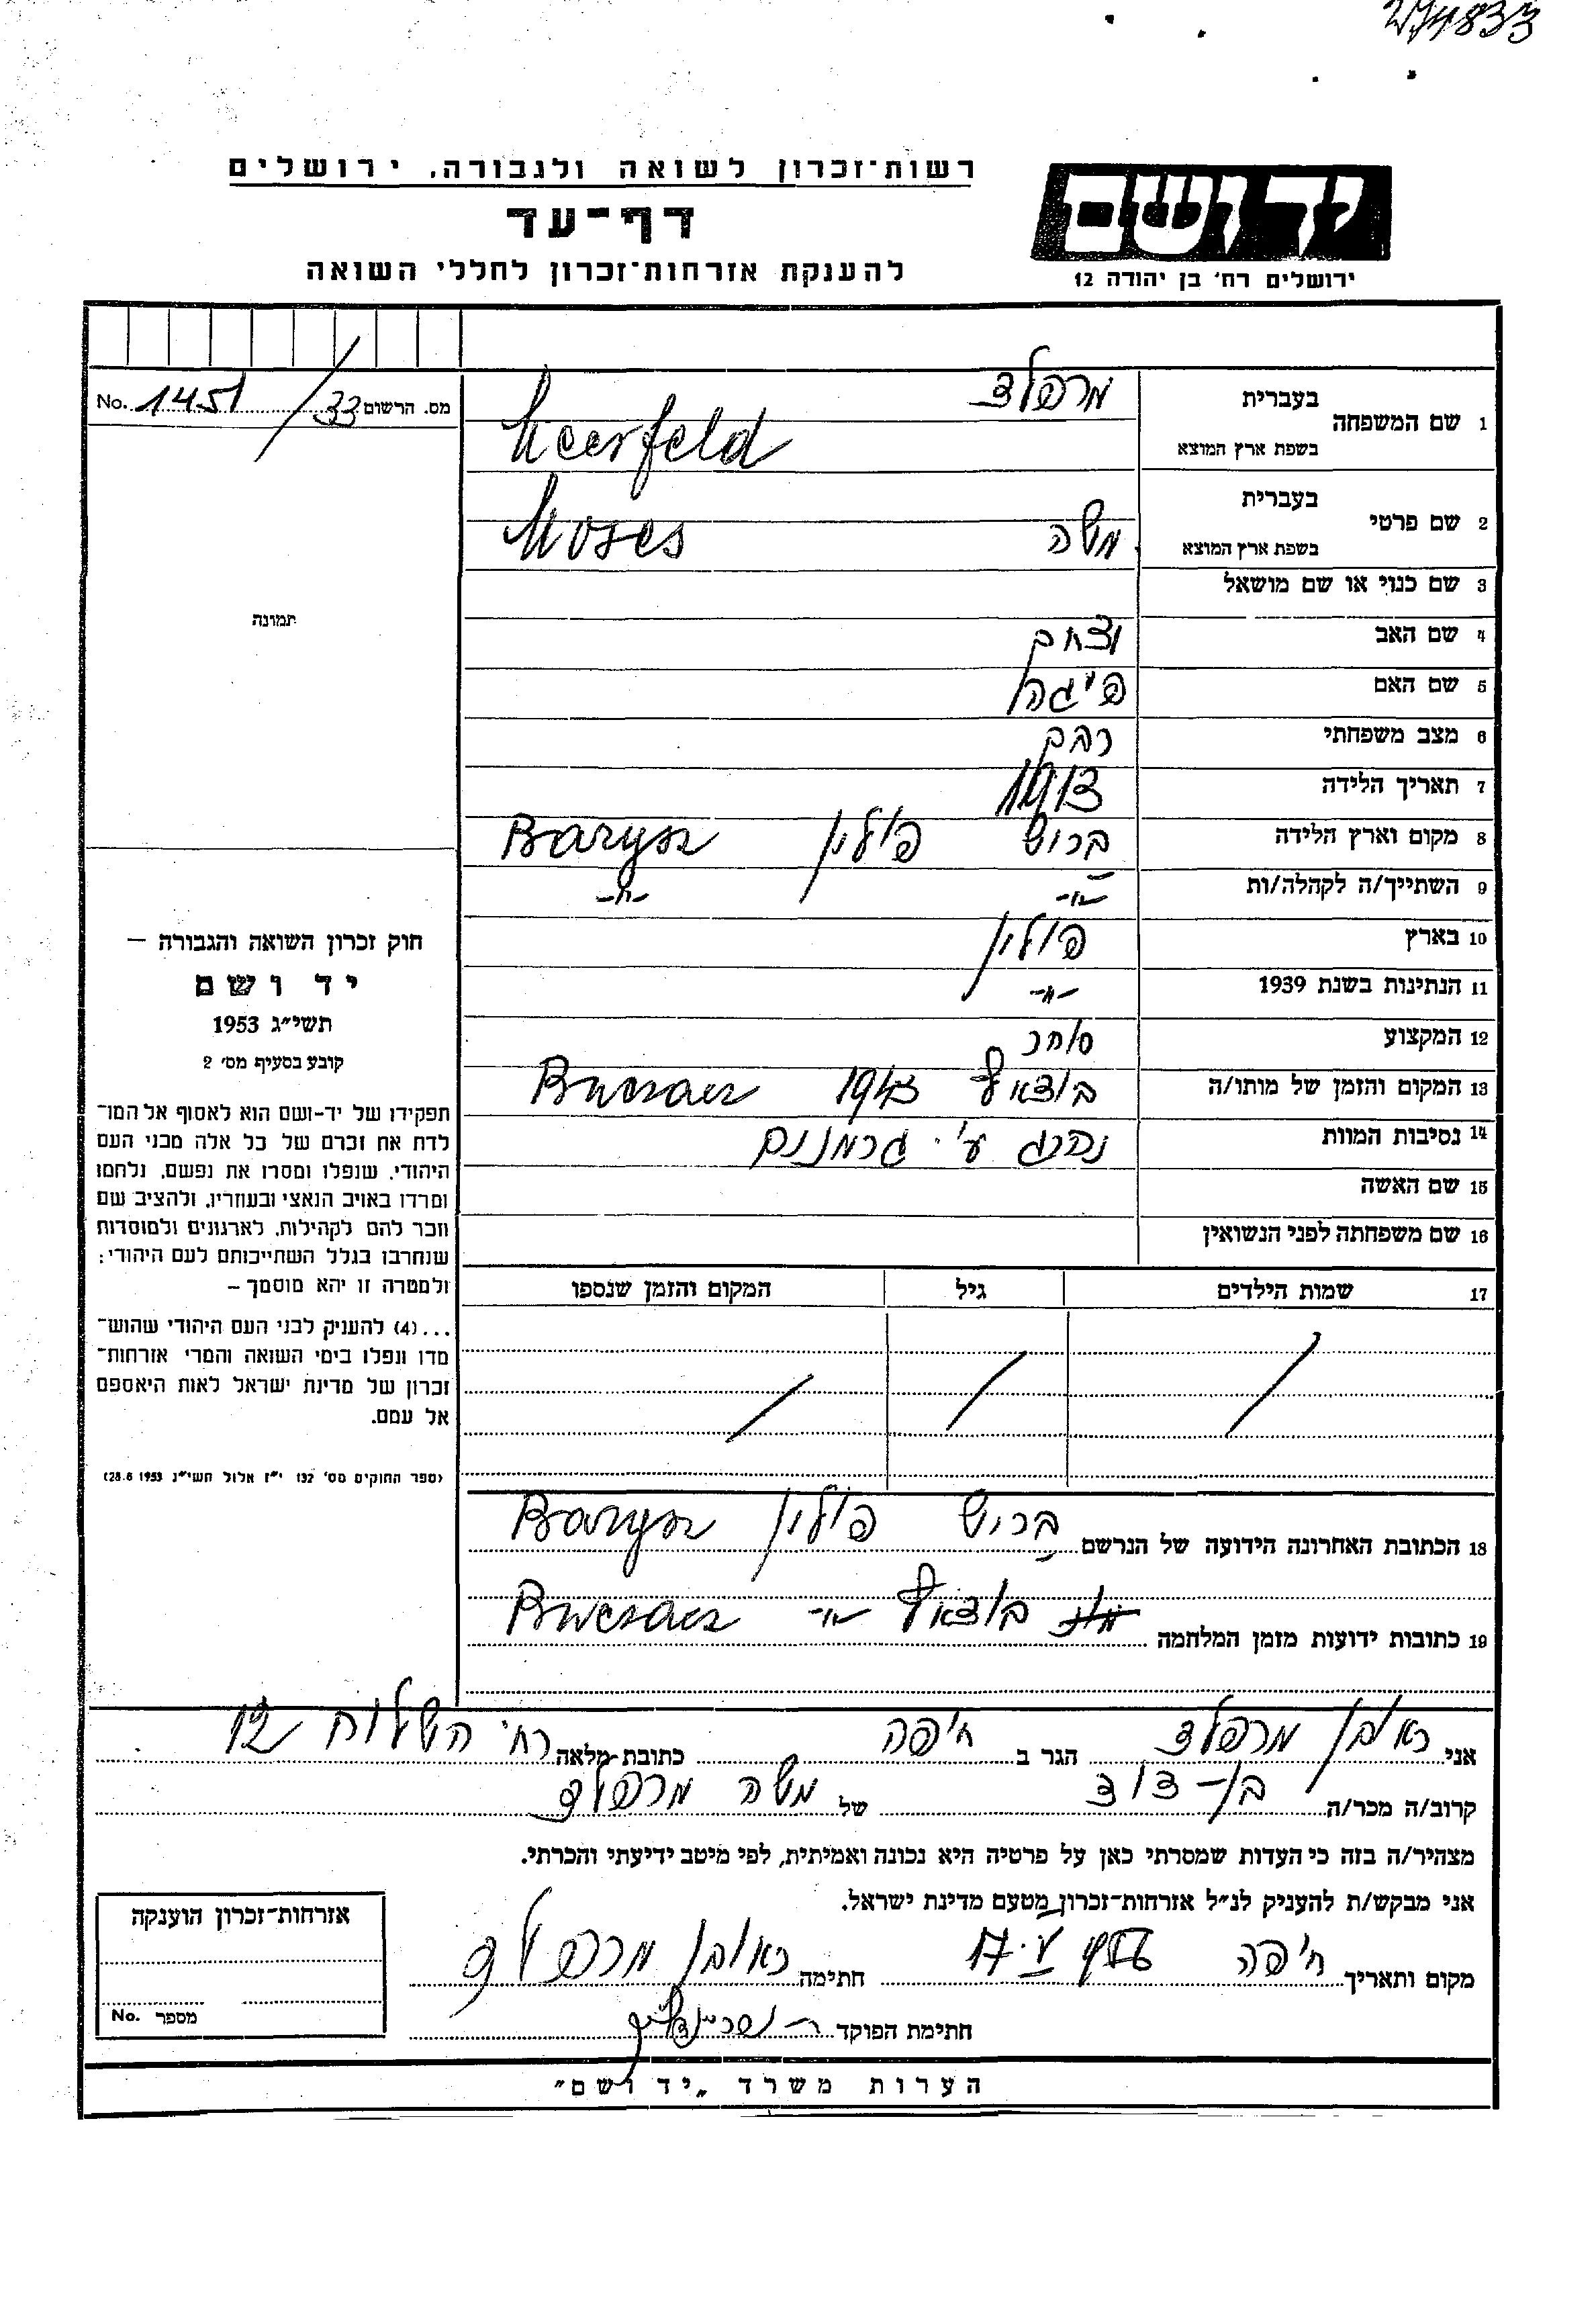 רשות־זכרון לשואה ולגבורה, ירושלים
דף־עד
להענקת אזרחות־זכרון לחללי השואה
יד ושם
ירושלים רח' בן יהודה 12
מס. הרשום 33 / 1451 No.
1 שם המשפחה
בעברית מרפלד
בשפת ארץ המוצא Meerfeld
2 שם פרטי
בעברית משה
בשפת ארץ המוצא Moses
3 שם כנוי או שם מושאל
4 שם האב
5 שם האם פייגה
6 מצב משפחתי
7 תאריך הלידה 1913
8 מקום וארץ הלידה בריש פולין Barysz
9 השתייך/ה לקהלה/ות -״- -״-
10 בארץ פולין
11 הנתינות בשנת 1939 -״-
12 המקצוע סוחר
13 המקום והזמן של מותו/ה 1943 Buczacz
14 נסיבות המוות נהרג ע'י גרמנים
15 שם האשה
16 שם משפחתה לפני הנשואין
17 שמות הילדים גיל המקום והזמן שנספו
18 הכתובת האחרונה הידועה של הנרשם בריש פולין Barysz
19 כתובות ידועות מזמן המלחמה -״- Buczacz
תמונה
חוק זכרון השואה והגבורה –
יד ושם
תשי״ג 1953
קובע בסעיף מס' 2
תפקידו של יד-ושם הוא לאסוף אל המו־
לדת את זכרם של כל אלה מבני העם
היהודי, שנפלו ומסרו את נפשם, נלחמו
ומרדו באויב הנאצי ובעוזריו, ולהציב שם
וזכר להם לקהילות, לארגונים ולמוסדות
שנחרבו בגלל השתייכותם לעם היהודי;
ולמטרה זו יהא מוסמך –
...(4) להעניק לבני העם היהודי שהוש־
מדו ונפלו בימי השואה והמרי אזרחות־
זכרון של מדינת ישראל לאות היאספם
אל עמם.
(ספר החוקים מס' 132 י״ז אלול תשי״ג 28.8.1953)
אני ראובן מרפלד הגר ב חיפה כתובת מלאה רח' השלוח 12
קרוב/ה מכר/ה בן-דוד של משה מרפלד
מצהיר/ה בזה כי העדות שמסרתי כאן על פרטיה היא נכונה ואמיתית, לפי מיטב ידיעתי והכרתי.
אני מבקש/ת להעניק לנ״ל אזרחות־זכרון מטעם מדינת ישראל.
מקום ותאריך חיפה חתימה ראובן מרפלד
חתימת הפוקד
אזרחות־זכרון הוענקה
מספר No.
הערות משרד „יד ושם״